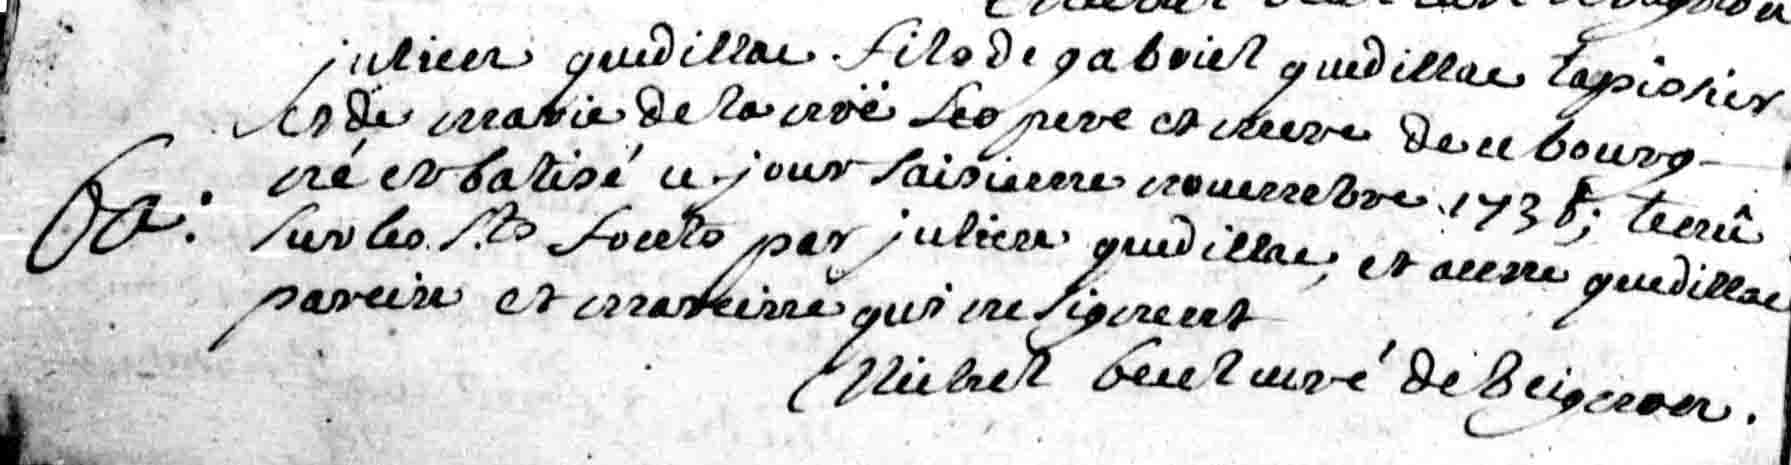 julien quedillac fils de gabriel quedillac tapissier
et de marie de la noë ses pere et mere de ce bourg
né et batisé ce jour saisieme nouembre 1738; tenû
Ba: sur les Sts fonts par julien quedillac, et anne quedillac
parein et mareine qui ne signent
Michel curé de beignon.